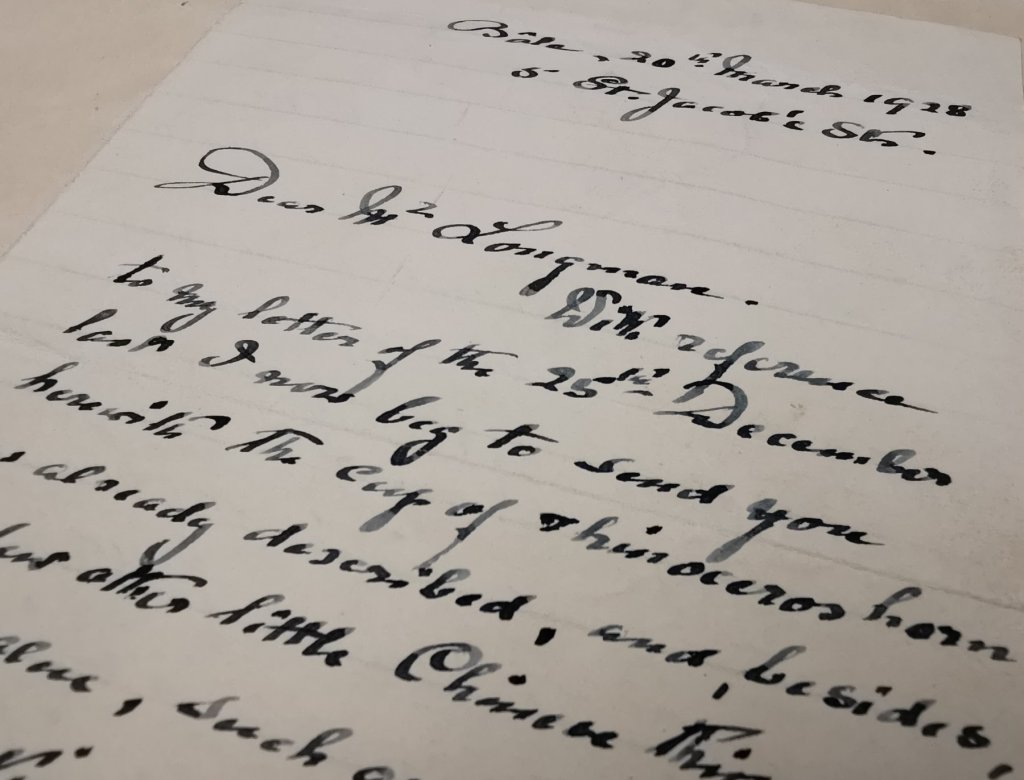 Bâle, 20th March 1928
5 St. Jacob's Str.
Dear Mr Longman.
With reference
to my letter of the 25th December
last I now beg to send you
herewith the cup of rhinoceros horn
already described, and, besides,
other little Chinese
, such